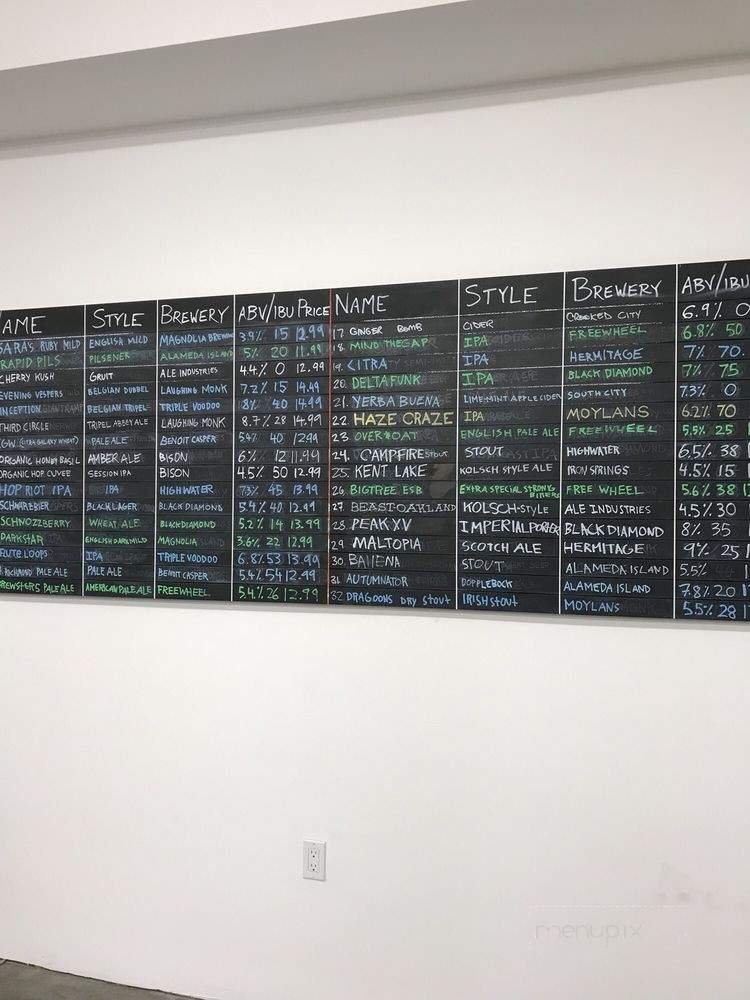 AME STYLE BREWERY ABV/IBU PRICE
SARA'S RUBY MILD ENGLISH MILD MAGNOLIA BREWING 3.9% 15 12.99
RAPID PILS PILSENER ALAMEDA ISLAND 5% 20 11.99
CHERRY KUSH GRUIT ALE INDUSTRIES 4.4% 0 12.99
EVENING VESPERS BELGIAN DUBBEL LAUGHING MONK 7.2% 15 14.49
INCEPTION BELGIAN TRIPEL TRIPLE VOODOO 8% 40 14.99
THIRD CIRCLE TRIPEL ABBEY ALE LAUGHING MONK 8.7% 28 14.99
CGW (CITRA GALAXY WHEAT) PALE ALE BENOIT CASPER 5.4% 40 12.99
ORGANIC HONEY BASIL AMBER ALE BISON 6% 12 11.99
ORGANIC HOP CUVEE SESSION IPA BISON 4.5% 50 12.99
HOP RIOT IPA IPA HIGHWATER 7.3% 45 13.99
SCHWARZBIER BLACK LAGER BLACK DIAMOND 5.4% 40 12.99
SCHNOZZBERRY WHEAT ALE BLACK DIAMOND 5.2% 14 13.99
DARKSTAR ENGLISH DARK MILD MAGNOLIA 3.6% 22 11.99
FLUTE LOOPS IPA TRIPLE VOODOO 6.8% 53 13.99
RICHMOND PALE ALE PALE ALE BENOIT CASPER 5.4% 54 12.49
BREWSTERS PALE ALE AMERICAN PALE ALE FREEWHEEL 5.4% 26 12.99
NAME STYLE BREWERY ABV/IBU
17 GINGER BOMB CIDER CROOKED CITY 6.9% 0
18. MIND THE GAP IPA FREEWHEEL 6.8% 50
19. CITRA IPA HERMITAGE 7% 70.
20. DELTA FUNK IPA BLACK DIAMOND 7% 75
21. YERBA BUENA LIME+MINT APPLE CIDER SOUTH CITY 7.3% 0
22 HAZE CRAZE IPA MOYLANS 6.2% 70
23 OVER*OAT ENGLISH PALE ALE FREEWHEEL 5.5% 25
24. CAMPFIRE STOUT STOUT HIGHWATER 6.5% 38
25. KENT LAKE KOLSCH STYLE ALE IRON SPRINGS 4.5% 15
26. BIGTREE ESB EXTRA SPECIAL STRONG BITTERS FREE WHEEL 5.6% 38
27 BEAST OAKLAND KOLSCH-STYLE ALE INDUSTRIES 4.5% 30
28. PEAK XV IMPERIAL PORTER BLACK DIAMOND 8% 35
29 MALTOPIA SCOTCH ALE HERMITAGE 9% 25
30 STOUT ALAMEDA ISLAND 5.5%
31 AUTUMINATOR DOPPLEBOCK ALAMEDA ISLAND 7.8% 20
32 DRAGOONS DRY STOUT IRISH STOUT MOYLANS 5.5% 28
menupix